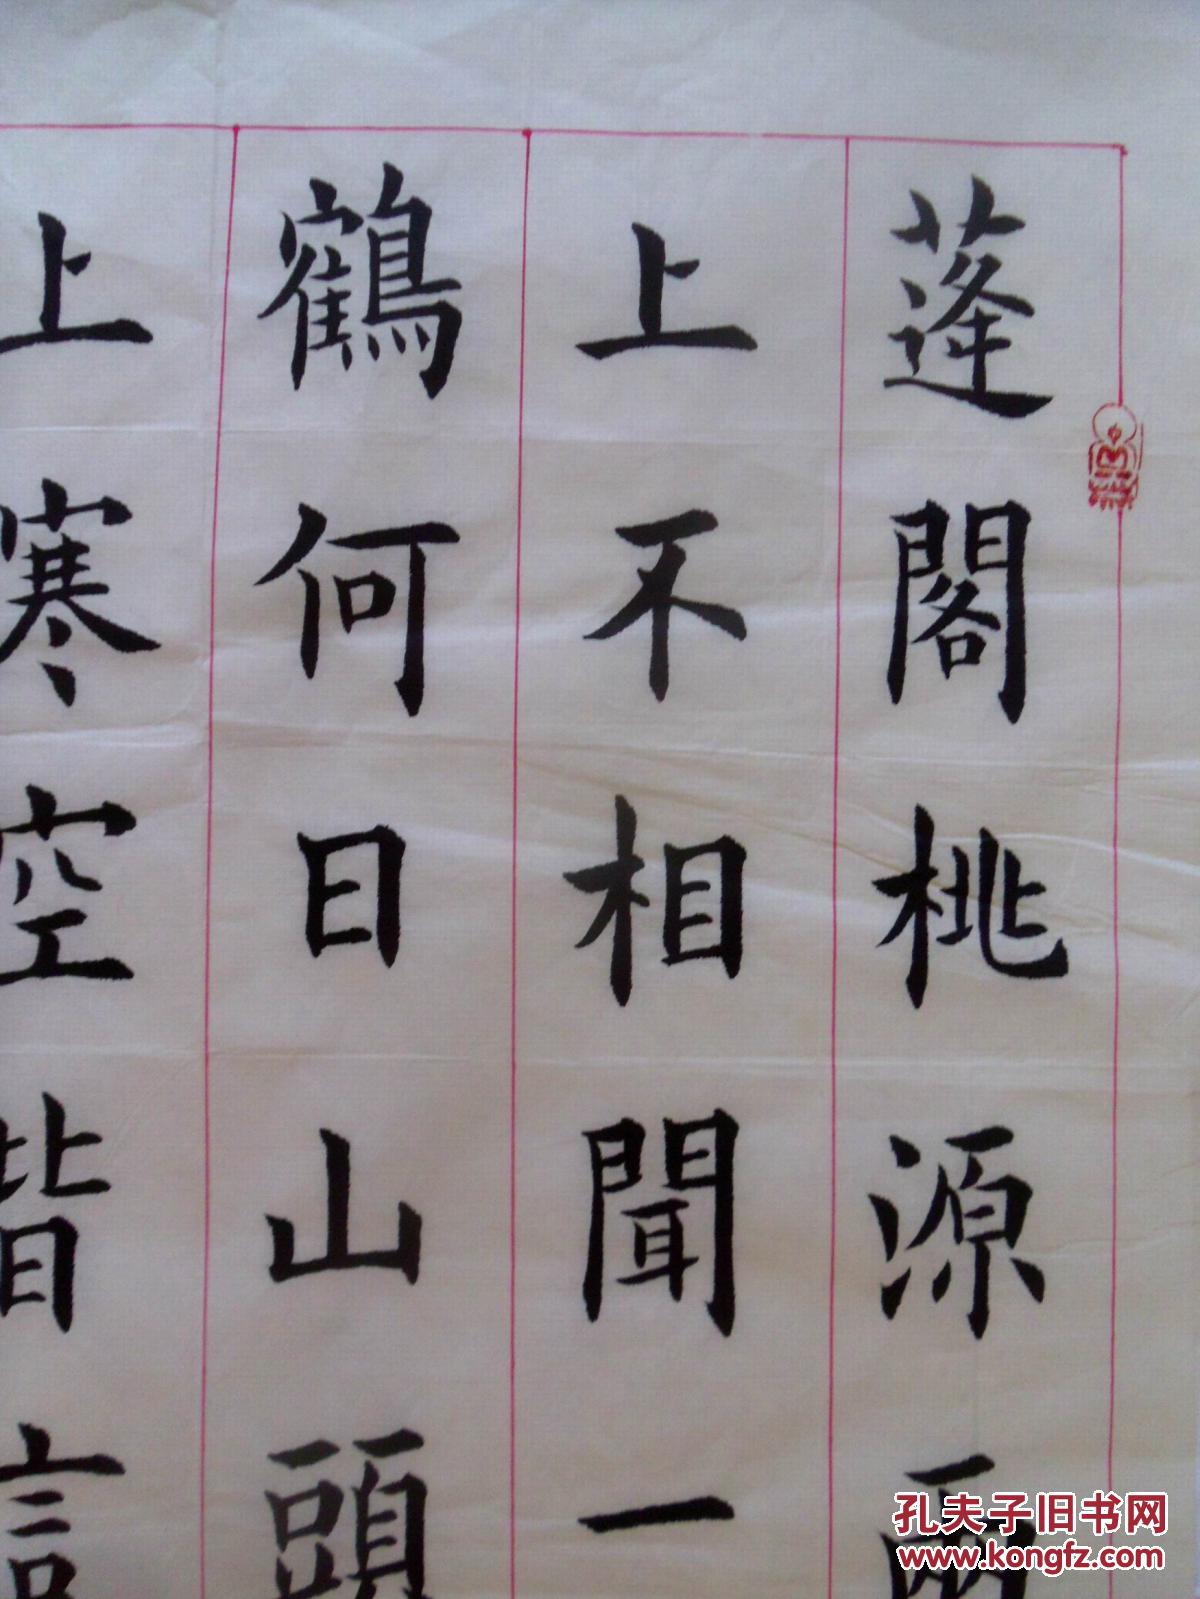 蓬閣桃源兩
上不相聞一
鶴何日山頭
上寒空皆言
孔夫子旧书网
www.kongfz.com